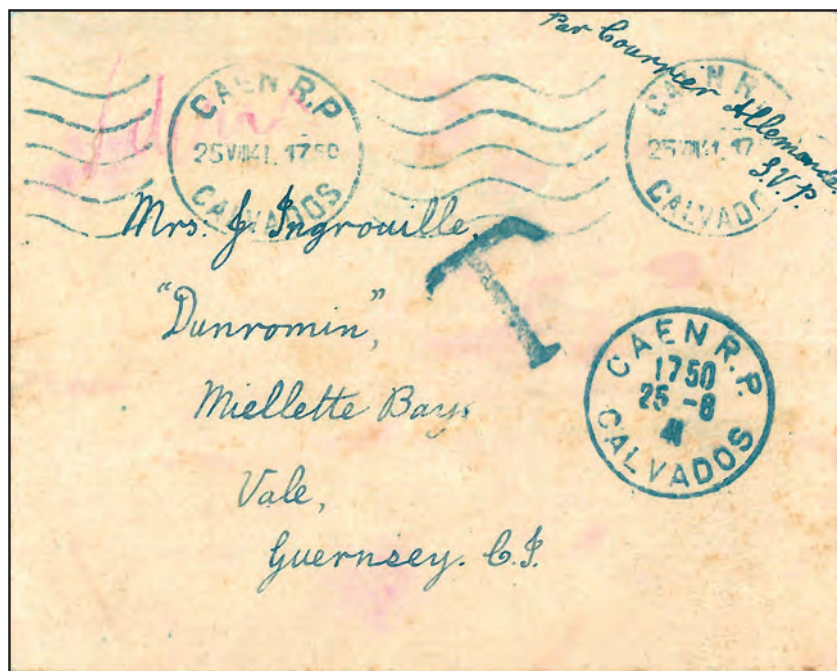 Par Courrier Allemande
S.V.P.
CAEN R.P
25 VIII 41. 17 50
CALVADOS
CAEN R.
25 VIII 41. 17
CALVADO
Mrs. J. Ingrouille.
"Dunromin",
Miellette Bay.
Vale,
Guernsey. C.I.
T
CAEN R.P.
1750
25 -8
41
CALVADOS